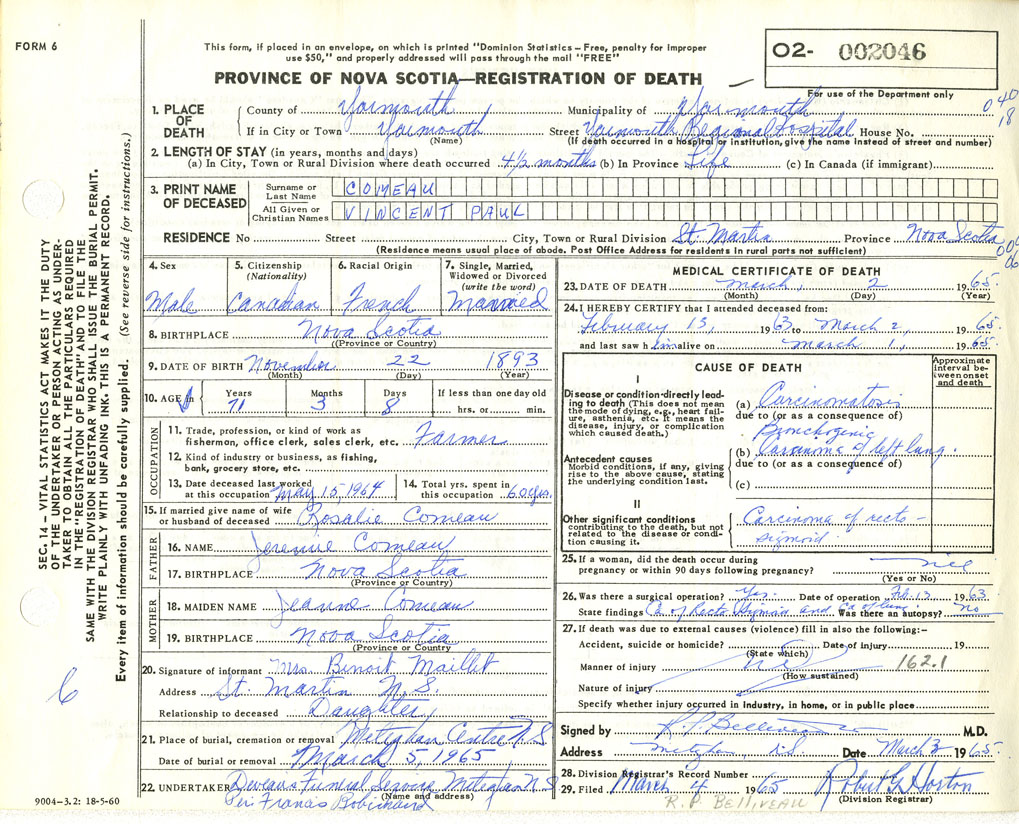 FORM 6
This form, if placed in an envelope, on which is printed "Dominion Statistics – Free, penalty for improper
use $50," and properly addressed will pass through the mail "FREE"
PROVINCE OF NOVA SCOTIA—REGISTRATION OF DEATH
O2- 002046
For use of the Department only
040
18
1. PLACE OF DEATH
County of Yarmouth Municipality of Yarmouth
If in City or Town Yarmouth Street Yarmouth Regional Hospital House No.
(Name) (If death occurred in a hospital or institution, give the name instead of street and number)
2. LENGTH OF STAY (in years, months and days)
(a) In City, Town or Rural Division where death occurred 4½ months (b) In Province Life (c) In Canada (if immigrant)
3. PRINT NAME OF DECEASED
Surname or Last Name COMEAU
All Given or Christian Names VINCENT PAUL
RESIDENCE No Street City, Town or Rural Division St. Martin Province Nova Scotia
(Residence means usual place of abode. Post Office Address for residents in rural parts not sufficient)
4. Sex
Male
5. Citizenship
(Nationality)
Canadian
6. Racial Origin
French
7. Single, Married,
Widowed or Divorced
(write the word)
Married
8. BIRTHPLACE Nova Scotia
(Province or Country)
9. DATE OF BIRTH November 22 1893
(Month) (Day) (Year)
10. AGE in
Years Months Days If less than one day old
71 3 8 hrs. or min.
OCCUPATION
11. Trade, profession, or kind of work as
fisherman, office clerk, sales clerk, etc. Farmer
12. Kind of industry or business, as fishing,
bank, grocery store, etc.
13. Date deceased last worked
at this occupation May 15, 1964
14. Total yrs. spent in
this occupation 60 yrs.
15. If married give name of wife
or husband of deceased Rosalie Comeau
FATHER
16. NAME Jeremie Comeau
17. BIRTHPLACE Nova Scotia
(Province or Country)
MOTHER
18. MAIDEN NAME Jeanne Comeau
19. BIRTHPLACE Nova Scotia
(Province or Country)
20. Signature of informant Mrs. Benoit Maillet
Address St. Martin N.S.
Relationship to deceased Daughter
21. Place of burial, cremation or removal Meteghan Centre N.S
Date of burial or removal March 5, 1965
22. UNDERTAKER Funeral Service Meteghan N.S
(Name and address)
Per Francis Robichaud
MEDICAL CERTIFICATE OF DEATH
23. DATE OF DEATH March, 2 1965.
(Month) (Day) (Year)
24. I HEREBY CERTIFY that I attended deceased from:
February 13, 1963 to March 2, 1965.
and last saw him alive on March 1, 1965.
CAUSE OF DEATH
Approximate
interval be-
tween onset
and death
I
Disease or condition directly lead-
ing to death (This does not mean
the mode of dying, e.g., heart fail-
ure, asthenia, etc. It means the
disease, injury, or complication
which caused death.)
(a) Carcinomatosis
due to (or as a consequence of)
Bronchogenic
(b) Carcinoma of left lung.
due to (or as a consequence of)
(c)
Antecedent causes
Morbid conditions, if any, giving
rise to the above cause, stating
the underlying condition last.
II
Other significant conditions
contributing to the death, but not
related to the disease or condi-
tion causing it.
Carcinoma of recto-
sigmoid
25. If a woman, did the death occur during
pregnancy or within 90 days following pregnancy? nil
(Yes or No)
26. Was there a surgical operation? Yes. Date of operation Feb. 13 1963
State findings Ca of Recto Sigmoid and Ca of lung. Was there an autopsy? No
27. If death was due to external causes (violence) fill in also the following:-
Accident, suicide or homicide? Date of injury 19
(State which)
Manner of injury nil 162.1
(How sustained)
Nature of injury
Specify whether injury occurred in industry, in home, or in public place
Signed by R. P. Belliveau M.D.
Address Meteghan, N.S Date March 3 1965
28. Division Registrar's Record Number
29. Filed March 4 1965 Robert G Horton
(Division Registrar)
R. P. BELLIVEAU
SEC. 14 – VITAL STATISTICS ACT MAKES IT THE DUTY
OF THE UNDERTAKER OR PERSON ACTING AS UNDER-
TAKER TO OBTAIN ALL THE PARTICULARS REQUIRED
IN THE "REGISTRATION OF DEATH" AND TO FILE THE
SAME WITH THE DIVISION REGISTRAR WHO SHALL ISSUE THE BURIAL PERMIT.
WRITE PLAINLY WITH UNFADING INK. THIS IS A PERMANENT RECORD.
Every item of information should be carefully supplied. (See reverse side for instructions.)
6
9004-3.2: 18-5-60